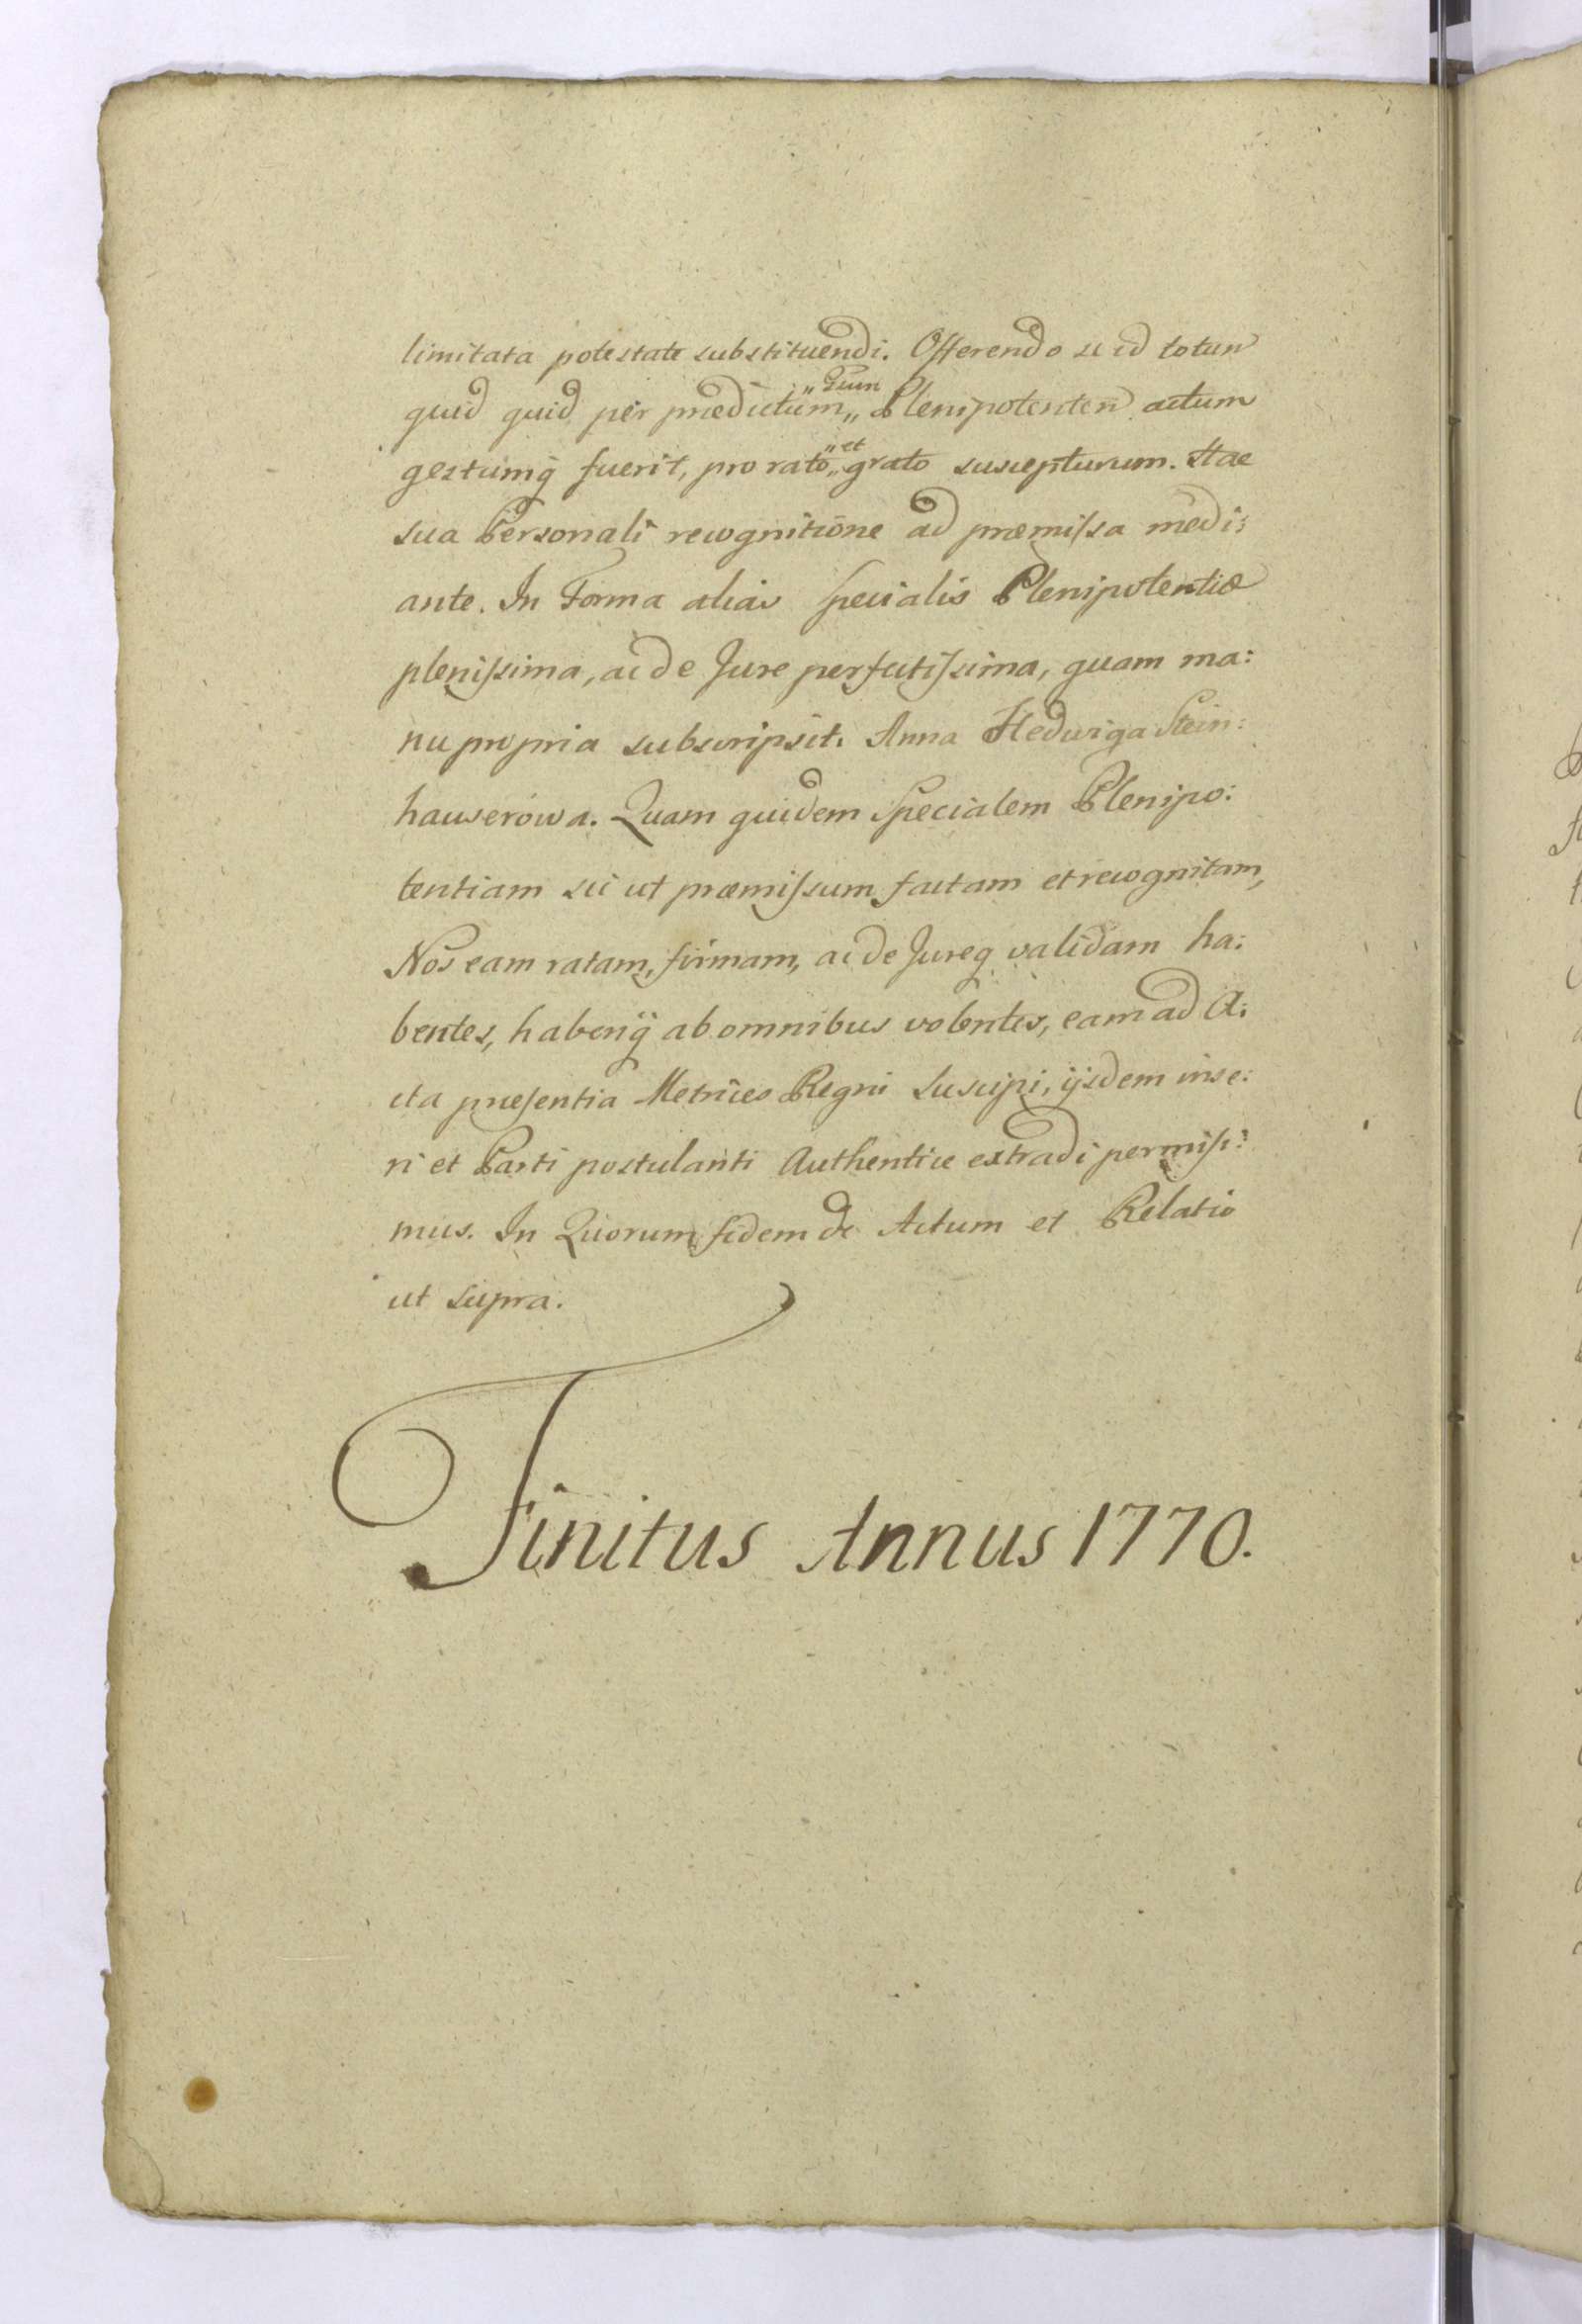 limitata potestate substituendi. Offerendo se id totum
quid quid per prædictum „suum„ Plenipotenten̄ actum
gestumq̄ fuerit, pro rato „et„ grato suscepturum. Stae
sua Personali recognitione ad præmissa medi:
ante. In Forma alias specialis Plenipotentiæ
plenissima, ac de Jure perfectissima, quam ma:
nu propria subscripsit. Anna Hedwiga Stein:
hauserowa. Quam quidem Specialem Plenipo:
tentiam sic ut præmissum factam et recognitam,
Nos eam ratam, firmam, ac de Jureq validam ha:
bentes, haberiq̄ ab omnibus volentes, eam ad A:
cta præsentia Metrices Regni Suscipi, ijsdem inse:
ri et Parti postulanti Authentice extradi permisi:
mus. In Quorum fidem &c Actum et Relatio
ut supra.
Finitus Annus 1770.